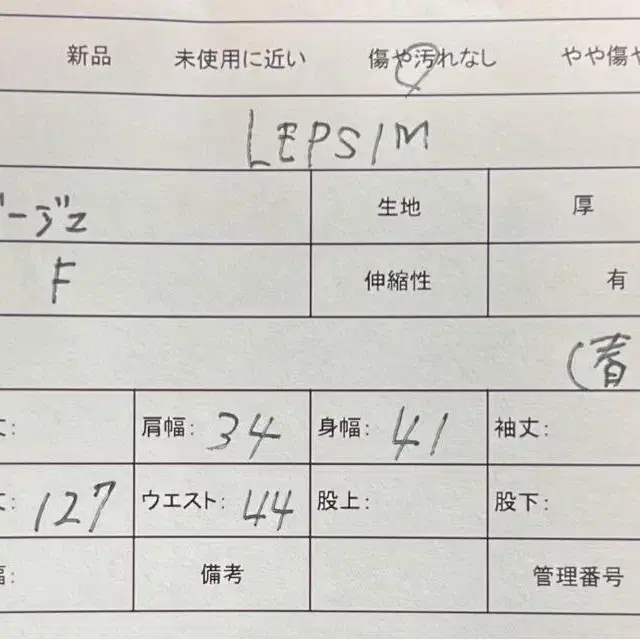 新品 未使用に近い 傷や汚れなし やや傷や
LEPSIM
ベージュ 生地 厚
F 伸縮性 有
(春
丈: 肩幅: 34 身幅: 41 袖丈:
丈: 127 ウエスト: 44 股上: 股下:
幅: 備考 管理番号